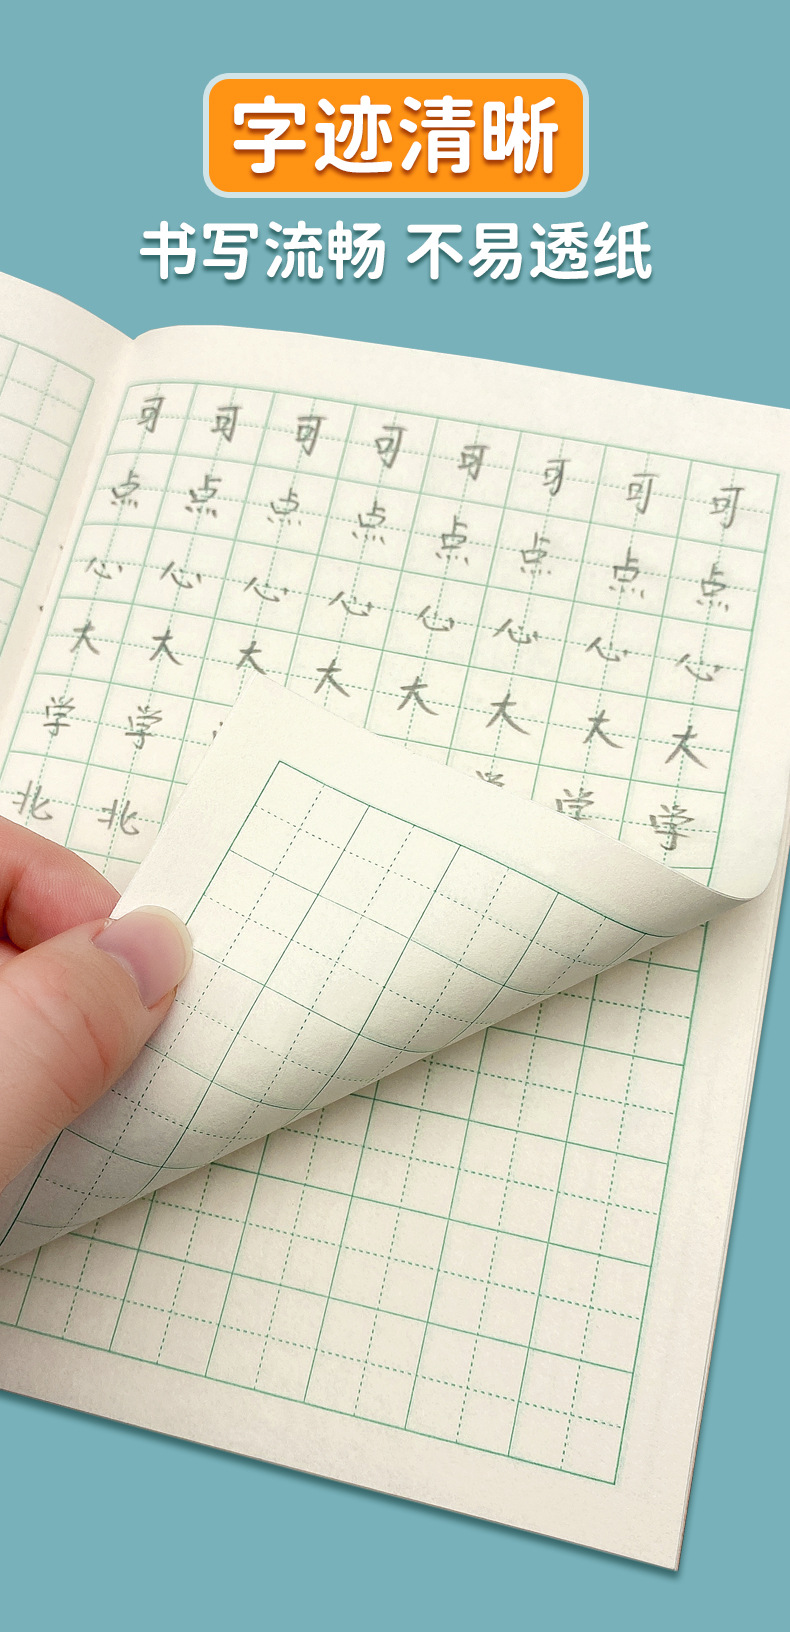 字迹清晰
书写流畅 不易透纸
可 可 可 可 可 可 可 可
点 点 点 点 点 点 点 点
心 心 心 心 心 心 心 心
大 大 大 大 大 大 大 大
学 学 学 学 学
北 北